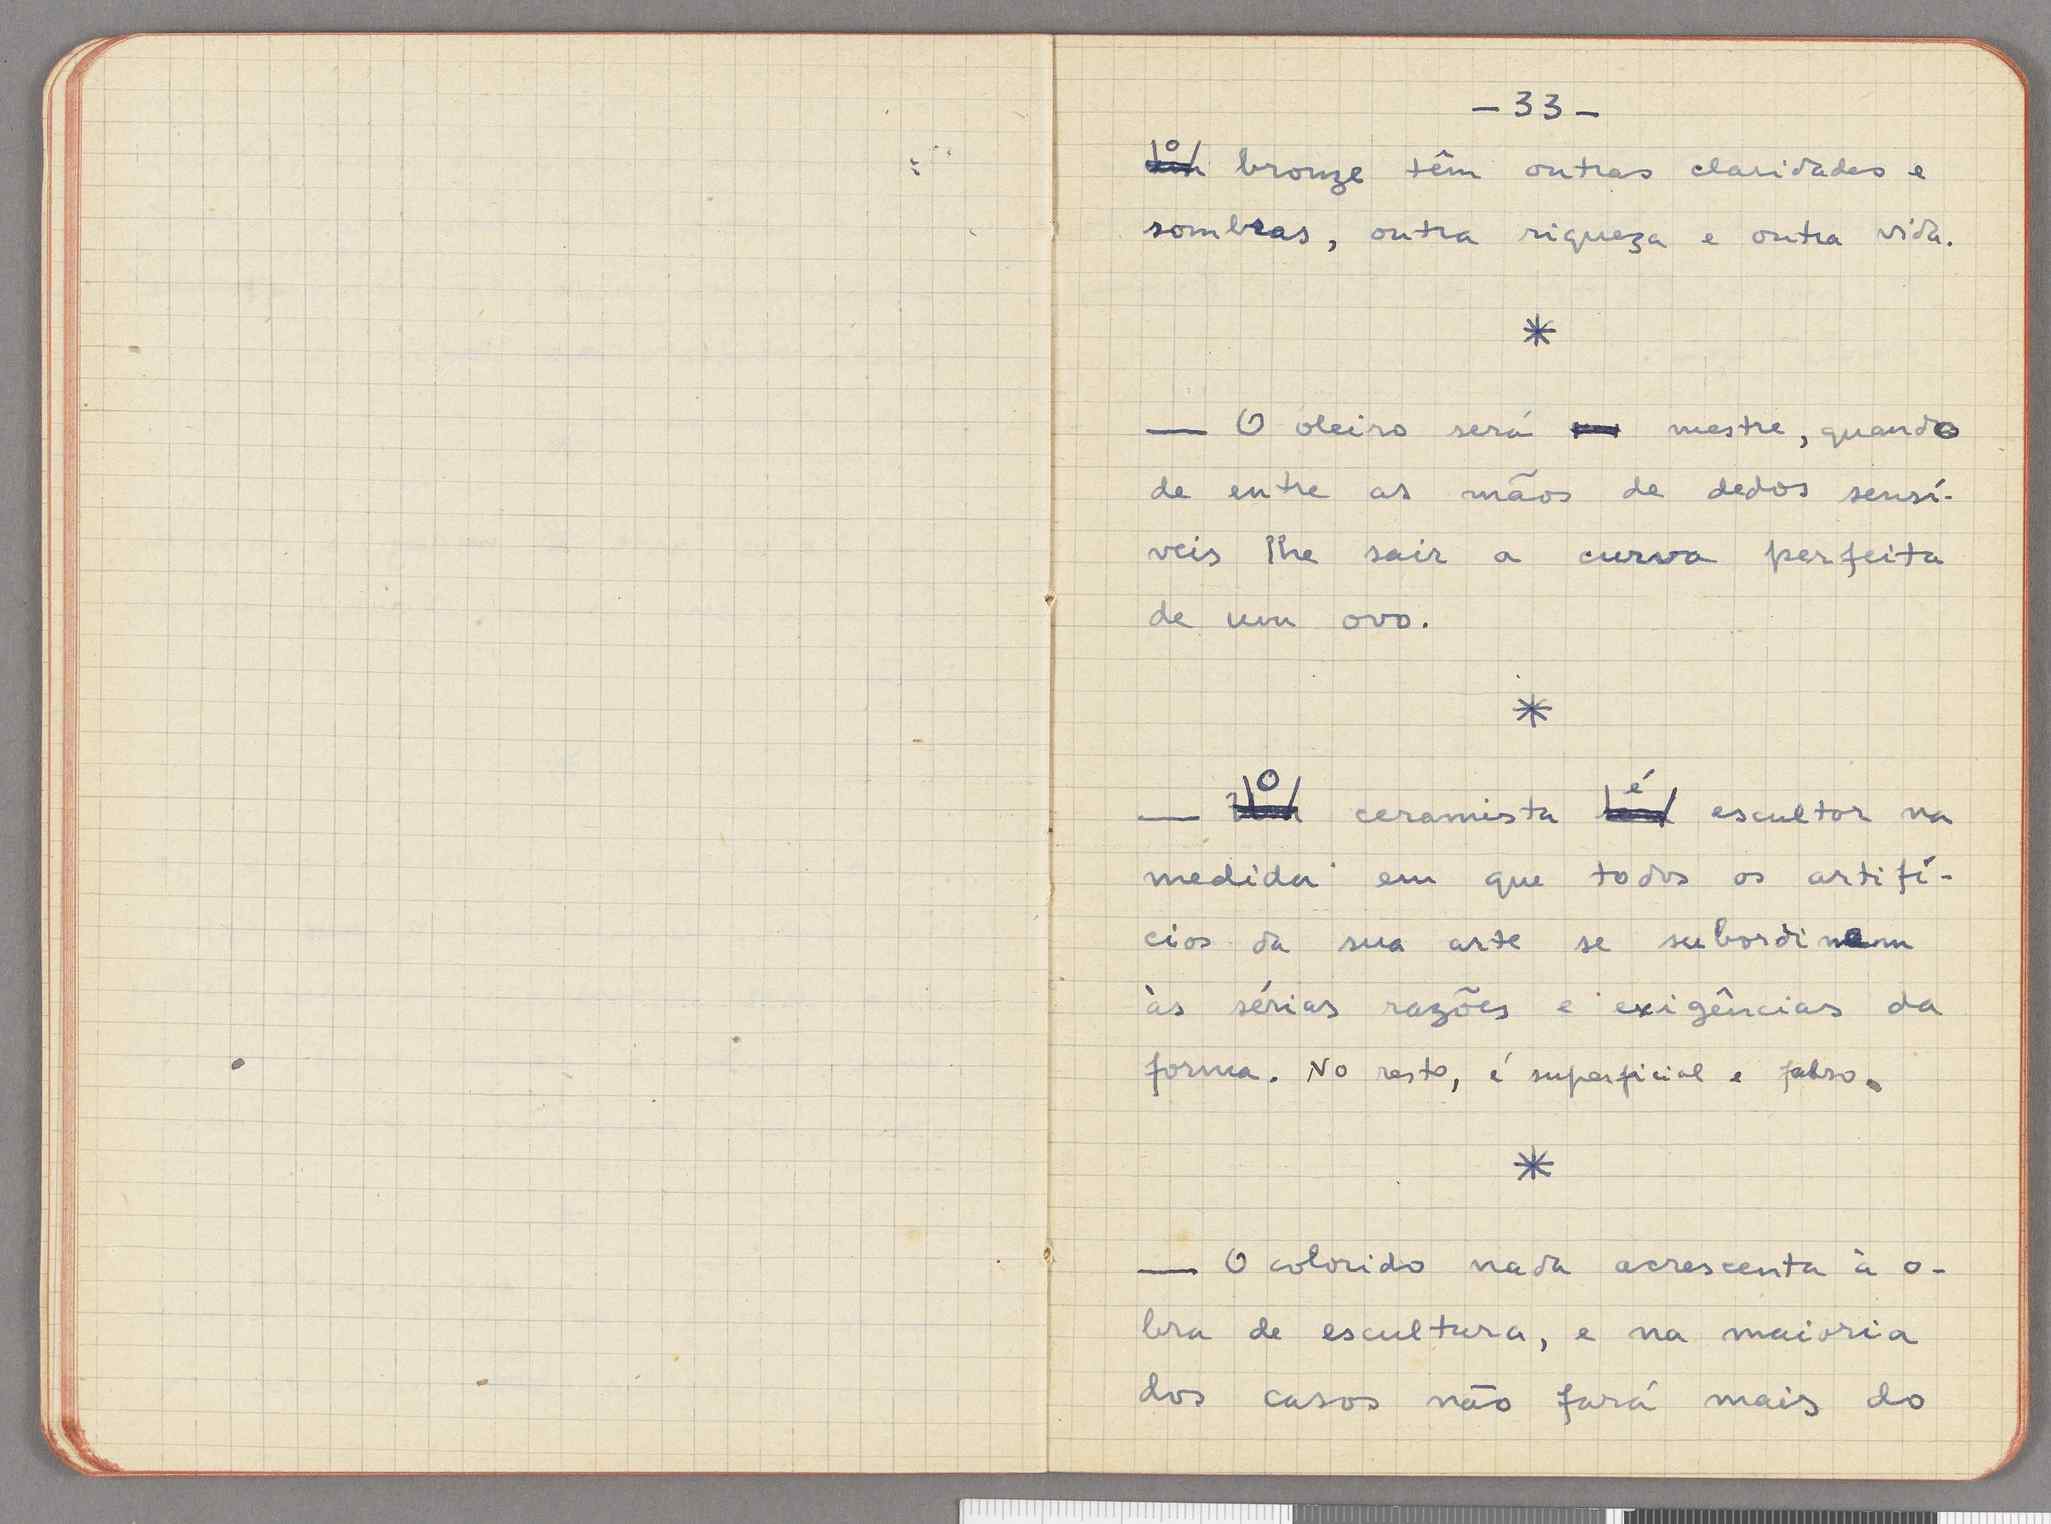 — 33 —
o bronze têm outras claridades e
sombras, outra riqueza e outra vida.
*
— O oleiro será mestre, quando
de entre as mãos de dedos sensí-
veis lhe sair a curva perfeita
de um ovo.
*
— O ceramista é escultor na
medida em que todos os artifí-
cios da sua arte se subordinem
às sérias razões e exigências da
forma. No resto, é superficial e falso.
*
— O colorido nada acrescenta à o-
bra de escultura, e na maioria
dos casos não fará mais do